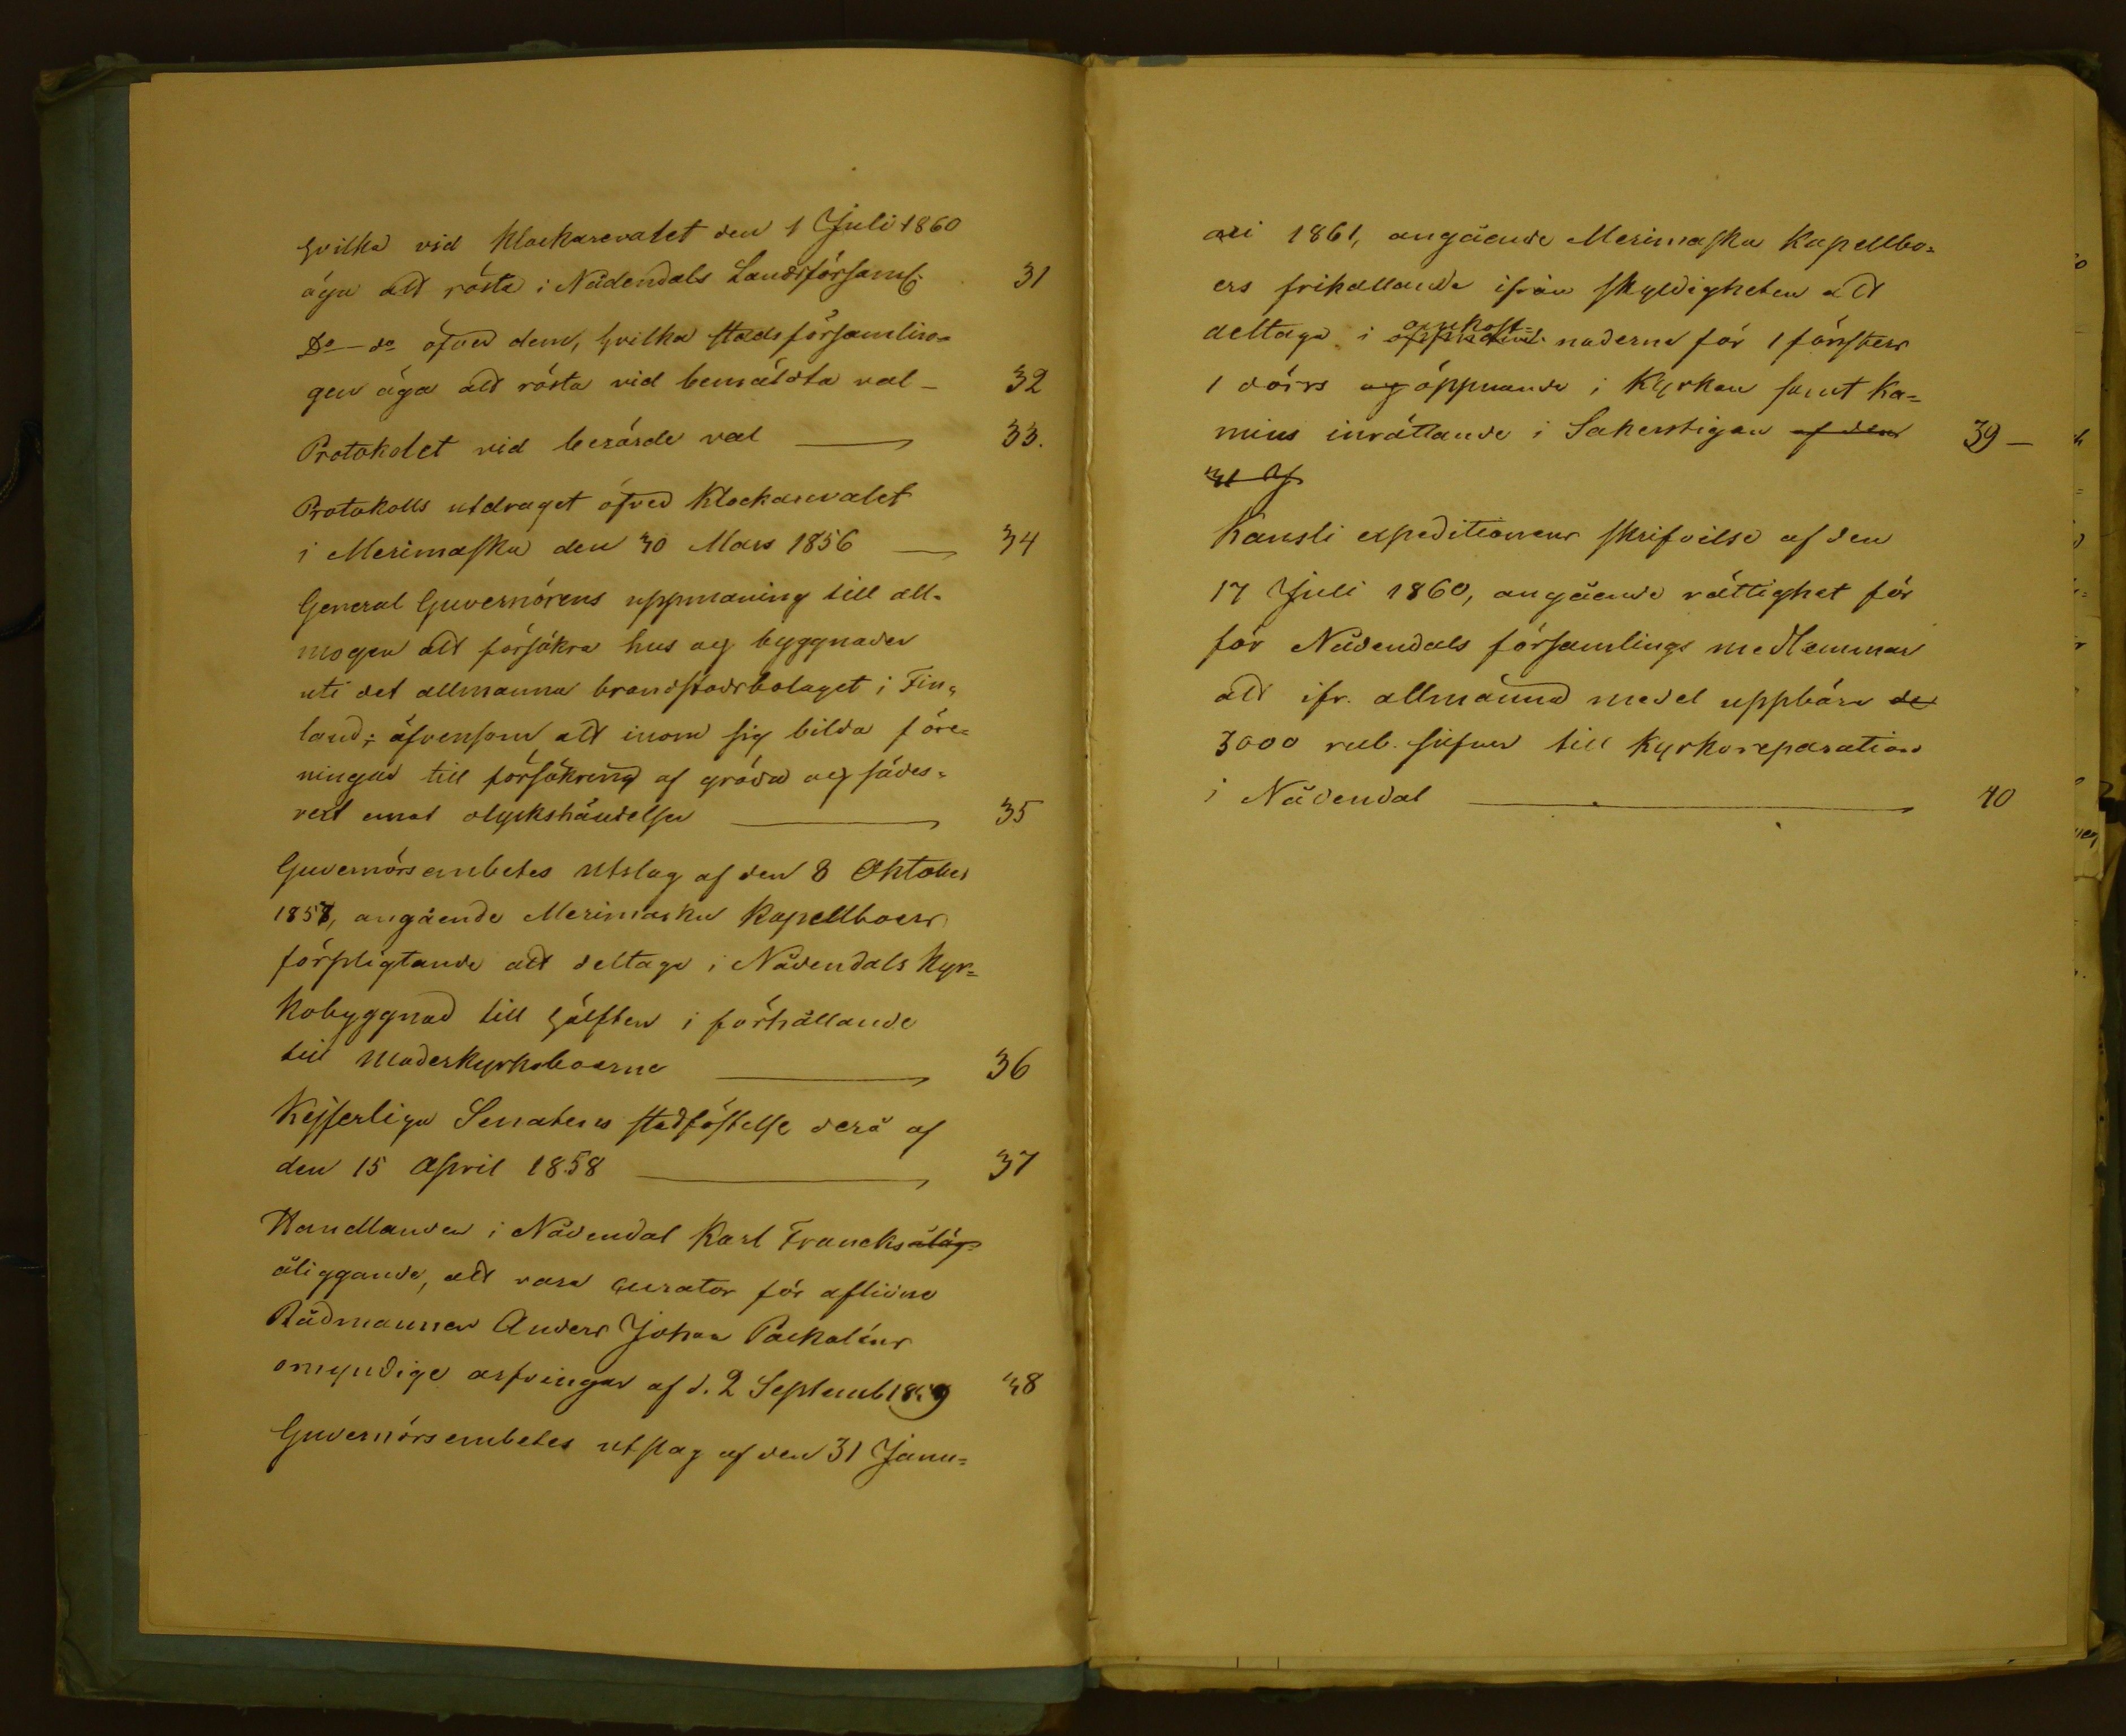 hvilka vid Klockarevalet den 1 Juli 1860
äga att rösta i Nådendals Landsförsaml. 31
Do do öfver dem, hvilka stadsförsamlin=
gen äga att rösta vid bemäldta val — 32
Protokolet vid berörde val — 33.
Protokolls utdraget öfver Klockarevalet
i Merimasku den 30 Mars 1856 — 34
General Guvernörens uppmaning till all=
mogen att försäkra hus och byggnader
uti det allmänna brandstodsbolaget i Fin=
land; äfvensom att inom sig bilda före=
ningar till försäkring af gröda och sädes=
vext emot olyckshändelser — 35
Guvernörsembetes utslag af den 8 Oktober
1857, angående Merimasku Kapellboers
förpligtande att deltaga i Nådendals Kyr=
kobyggnad till hälften i förhållande
till Moderkyrkoboerne — 36
Kejserliga Senatens stadfästelse derå af
den 15 April 1858 — 37
Handlanden i Nådendal Karl Francks åläg=
åliggande, att vara Curator för aflidne
Rådmannen Anders Johan Packaléns
omyndige arfvingar af d. 2 Septemb 1859 38
Guvernörsembetes utslag af den 31 Janu=
ari 1861, angående Merimasku Kapellbo=
ers frikallande ifrån skyldigheten att
deltaga i omkost= naderna för 1 fönsters
1 dörrs och öppnande i Kyrkan samt Ka=
mins inrättande i Sakerstigan af den 39 —
31 Af
Kansli expeditionens skrifvilse af den
17 Juli 1860, angående rättighet för
för Nådendals församlings medlemmar
att ifr. allmänna medel uppbära de
3000 rub. silfver till Kyrkoreparation
i Nådendal — 40